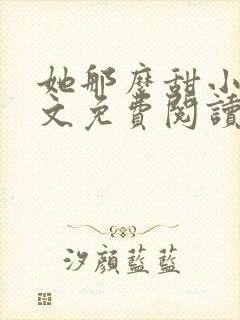 她那麼甜小
文免費閱讀
汐顏藍藍